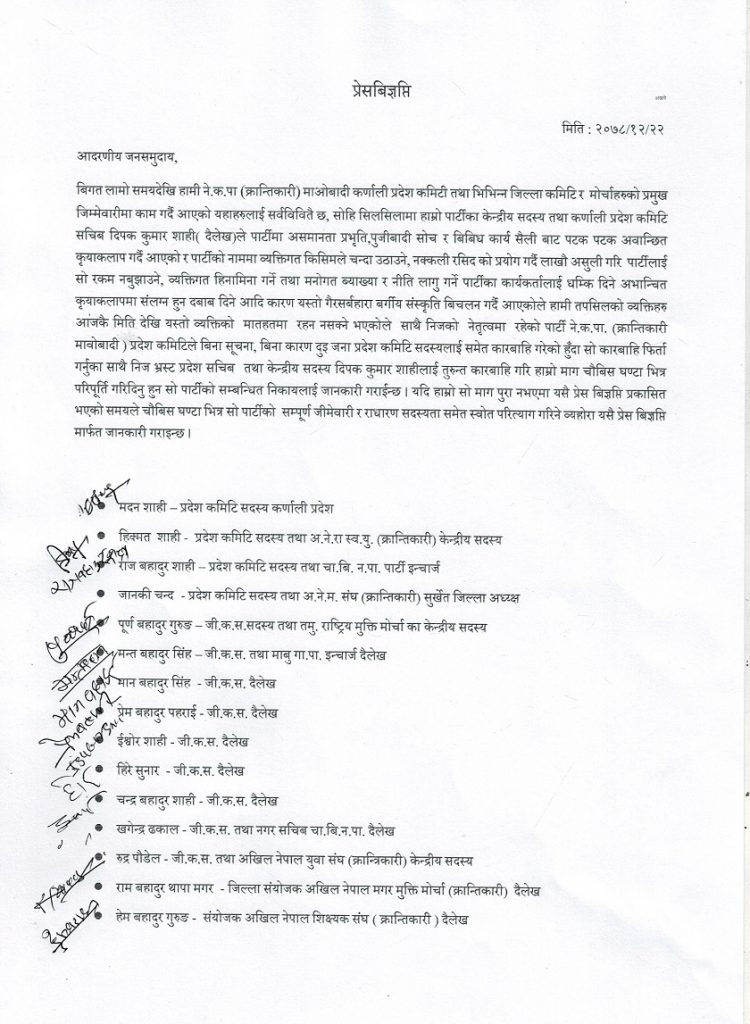 प्रेसबिज्ञप्ति
मिति : २०७८/१२/२२
आदरणीय जनसमुदाय,
बिगत लामो समयदेखि हामी ने.क.पा (क्रान्तिकारी) माओबादी कर्णाली प्रदेश कमिटी तथा भिभिन्न जिल्ला कमिटि र मोर्चाहरुको प्रमुख
जिम्मेवारीमा काम गर्दै आएको यहाहरुलाई सर्वविवितै छ, सोहि सिलसिलामा हाम्रो पार्टीका केन्द्रीय सदस्य तथा कर्णाली प्रदेश कमिटि
सचिब दिपक कुमार शाही( दैलेख)ले पार्टीमा असमानता प्रभृति,पुजीबादी सोच र बिबिध कार्य सैली बाट पटक पटक अवान्छित
कृयाकलाप गर्दै आएको र पार्टीको नाममा व्यक्तिगत किसिमले चन्दा उठाउने, नक्कली रसिद को प्रयोग गर्दै लाखौ असुली गरि पार्टीलाई
सो रकम नबुझाउने, व्यक्तिगत हिनामिना गर्ने तथा मनोगत ब्याख्या र नीति लागु गर्ने पार्टीका कार्यकर्तालाई धम्कि दिने अभान्चित
कृयाकलापमा संलग्न हुन दबाब दिने आदि कारण यस्तो गैरसर्बहारा बर्गीय संस्कृति बिचलन गर्दै आएकोले हामी तपसिलको व्यक्तिहरु
आजकै मिति देखि यस्तो व्यक्तिको मातहतमा रहन नसक्ने भएकोले साथै निजको नेतृत्वमा रहेको पार्टी ने.क.पा. (क्रान्तिकारी
मावोबादी ) प्रदेश कमिटिले बिना सूचना, बिना कारण दुइ जना प्रदेश कमिटि सदस्यलाई समेत कारबाहि गरेको हुँदा सो कारबाहि फिर्ता
गर्नुका साथै निज भ्रस्ट प्रदेश सचिब तथा केन्द्रीय सदस्य दिपक कुमार शाहीलाई तुरुन्त कारबाहि गरि हाम्रो माग चौबिस घण्टा भित्र
परिपूर्ति गरिदिनु हुन सो पार्टीको सम्बन्धित निकायलाई जानकारी गराईन्छ । यदि हाम्रो सो माग पुरा नभएमा यसै प्रेस बिज्ञप्ति प्रकासित
भएको समयले चौबिस घण्टा भित्र सो पार्टीको सम्पूर्ण जीमेवारी र राधारण सदस्यता समेत स्वोत परित्याग गरिने व्यहोरा यसै प्रेस बिज्ञप्ति
मार्फत जानकारी गराइन्छ ।
मदन शाही – प्रदेश कमिटि सदस्य कर्णाली प्रदेश
हिक्मत शाही - प्रदेश कमिटि सदस्य तथा अ.ने.रा स्व.यु. (क्रान्तिकारी) केन्द्रीय सदस्य
राज बहादुर शाही – प्रदेश कमिटि सदस्य तथा चा.बि. न.पा. पार्टी इन्चार्ज
जानकी चन्द - प्रदेश कमिटि सदस्य तथा अ.ने.म. संघ (क्रान्तिकारी) सुर्खेत जिल्ला अध्य्क्ष
पूर्ण बहादुर गुरुङ – जी.क.स.सदस्य तथा तमु. राष्ट्रिय मुक्ति मोर्चा का केन्द्रीय सदस्य
मन्त बहादुर सिंह – जी.क.स. तथा माबु गा.पा. इन्चार्ज दैलेख
मान बहादुर सिंह - जी.क.स. दैलेख
प्रेम बहादुर पहराई - जी.क.स. दैलेख
ईश्वोर शाही - जी.क.स. दैलेख
हिरे सुनार - जी.क.स. दैलेख
चन्द्र बहादुर शाही - जी.क.स. दैलेख
खगेन्द्र ढकाल - जी.क.स. तथा नगर सचिब चा.बि.न.पा. दैलेख
रुद्र पौडेल - जी.क.स. तथा अखिल नेपाल युवा संघ (क्रान्त्रिकारी) केन्द्रीय सदस्य
राम बहादुर थापा मगर - जिल्ला संयोजक अखिल नेपाल मगर मुक्ति मोर्चा (क्रान्तिकारी) दैलेख
हेम बहादुर गुरुङ - संयोजक अखिल नेपाल शिक्ष्यक संघ ( क्रान्तिकारी ) दैलेख